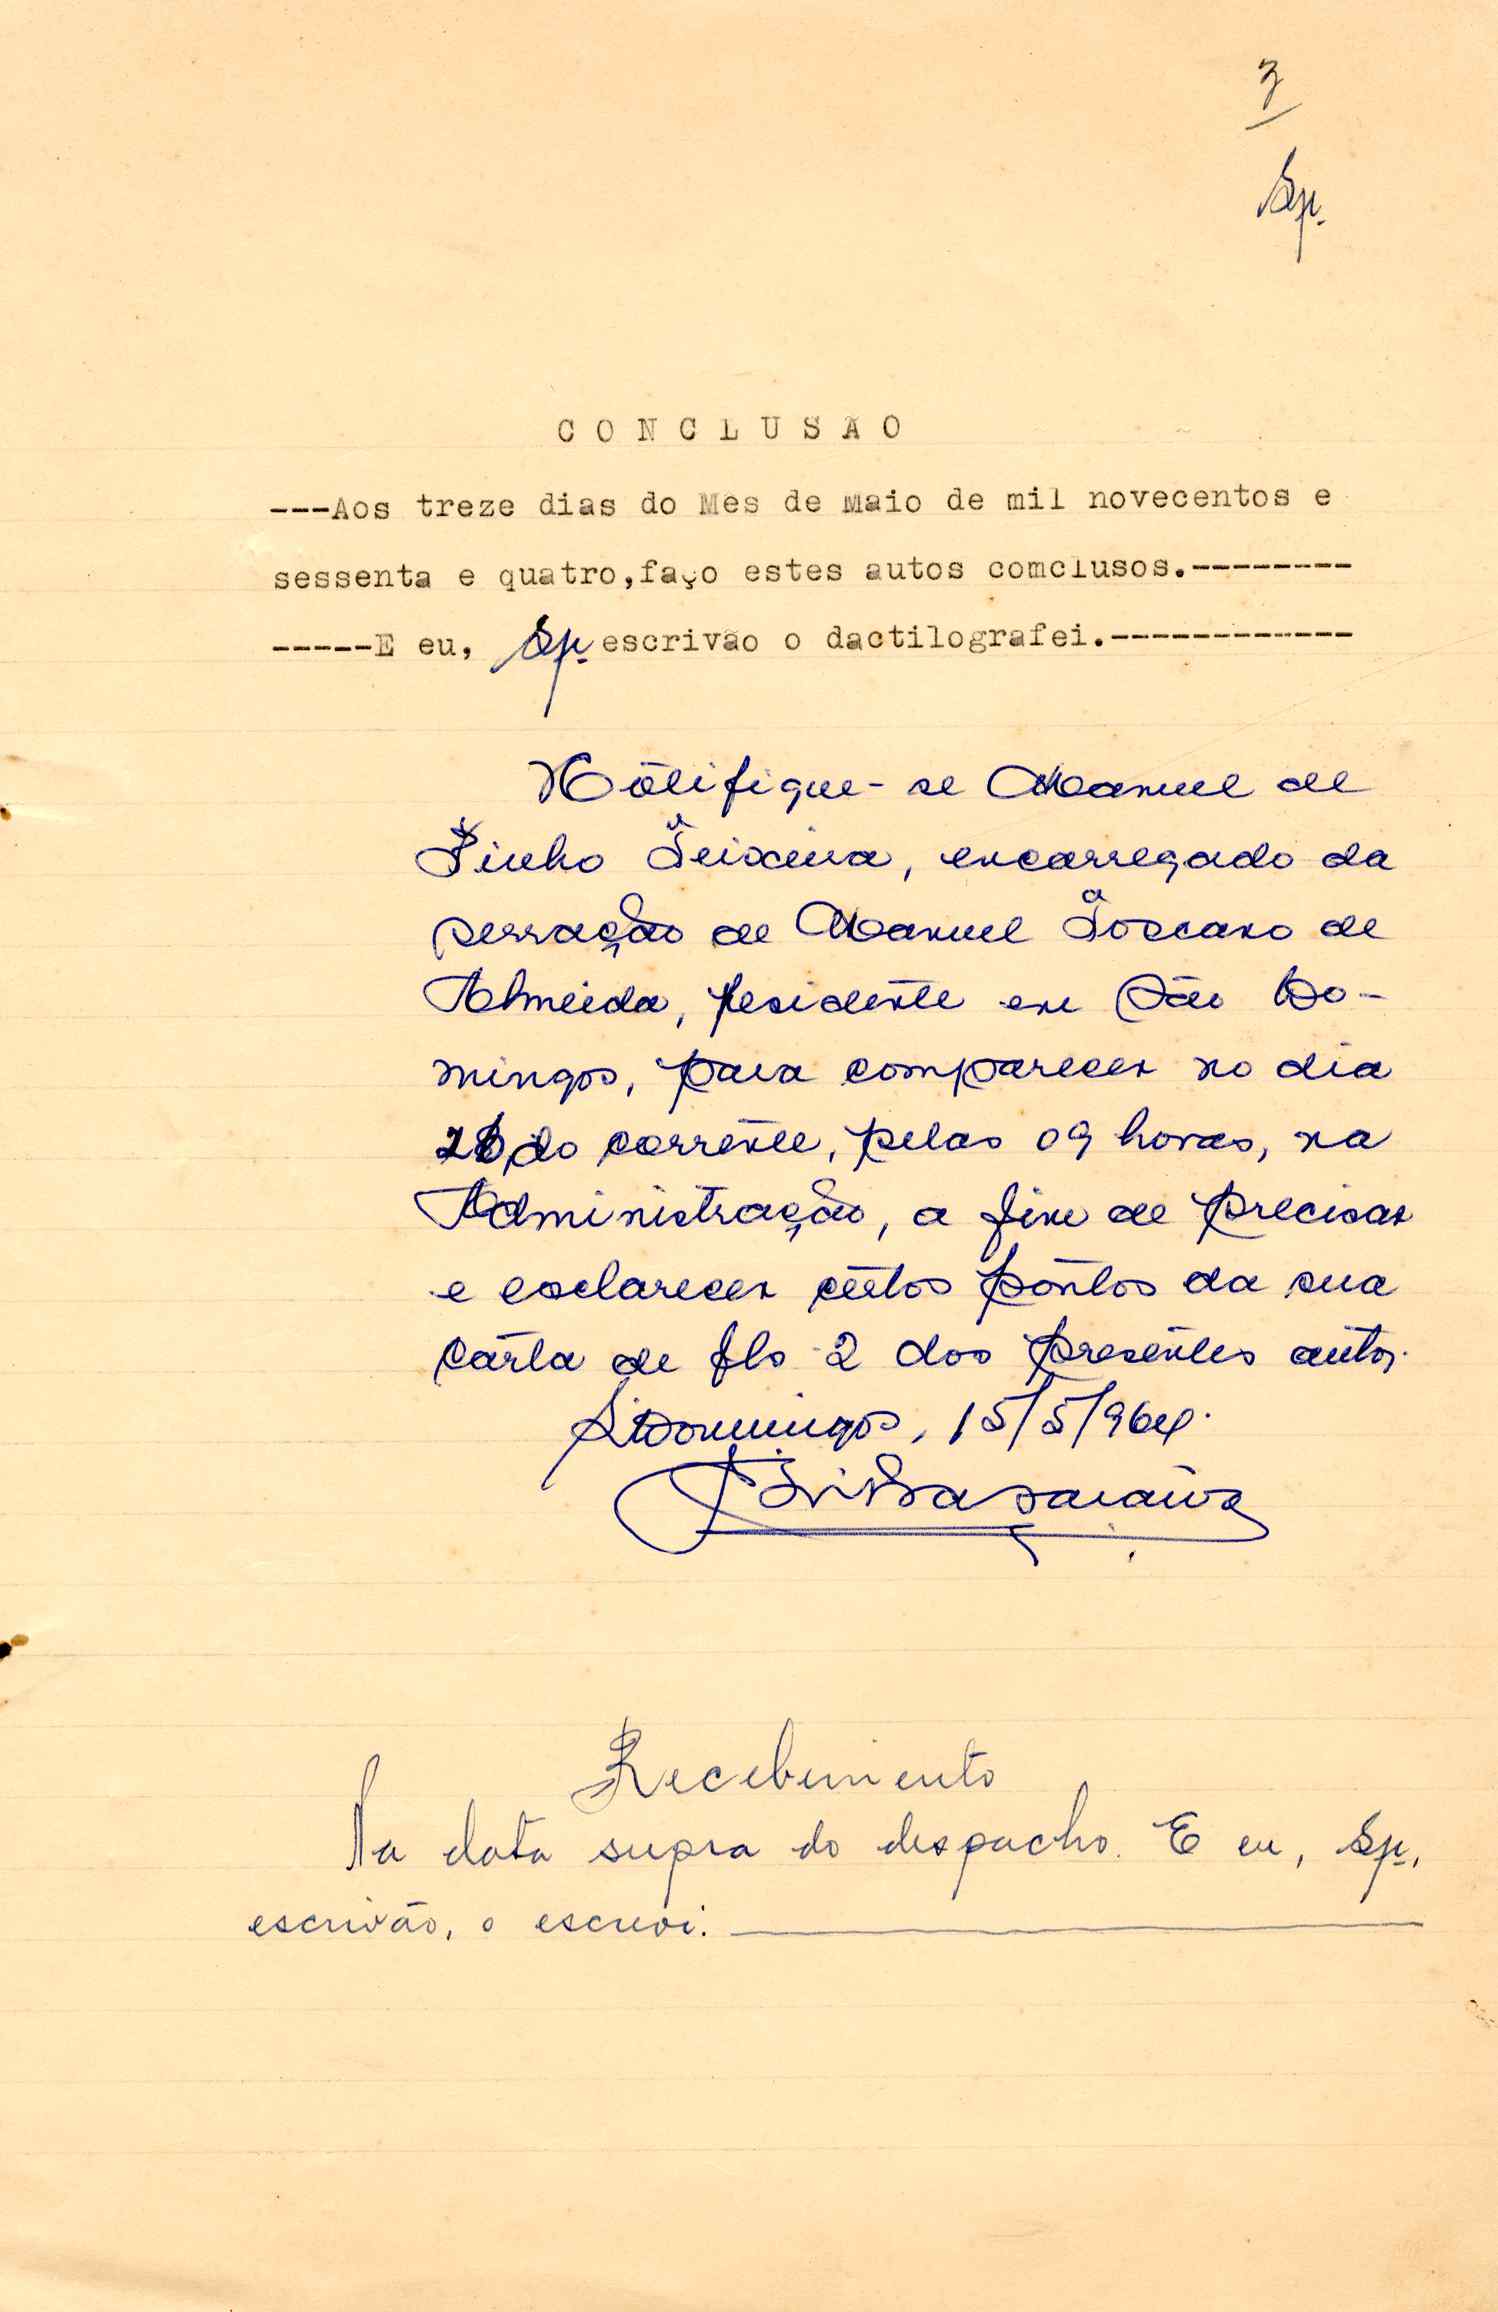 3
Sp.
CONCLUSÃO
---Aos treze dias do Mes de Maio de mil novecentos e
sessenta e quatro,faço estes autos comclusos.--------
-----E eu, Sp. escrivão o dactilografei.------------
Notifique-se Manuel de
Pinho Teixeira, encarregado da
serração de Manuel Toscano de
Almeida, residente em São Do-
mingos, para comparecer no dia
do corrente, pelas 09 horas, na
Administração, a fim de precisar
e esclarecer certos pontos da sua
carta de fls 2 dos presentes autos.
S. Domingos, 15/5/964.
Recebimento
Na data supra do despacho. E eu, Sp.,
escrivão, o escrevi.